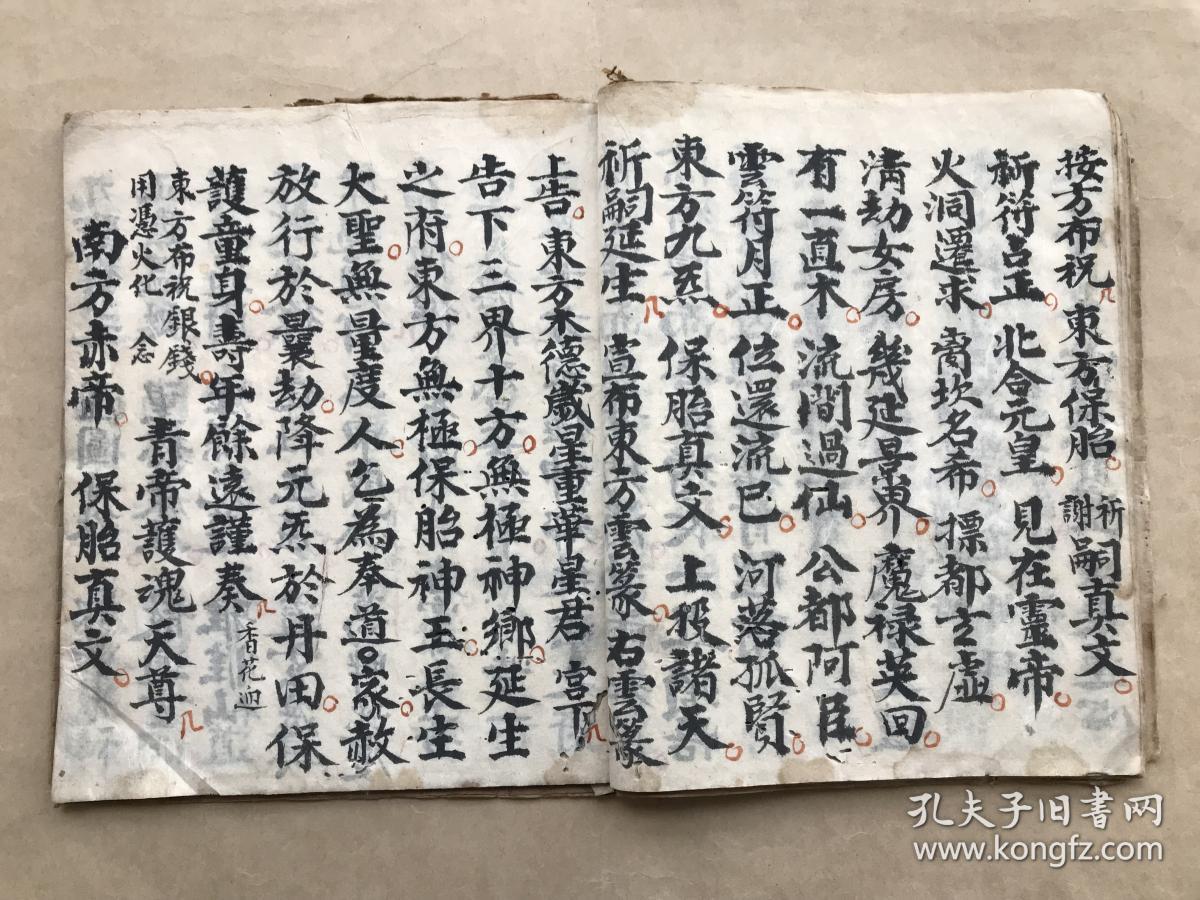 按方布祝 東方保胎 祈謝嗣真文
新符占正 北合元皇 見在靈帝
火洞遷求 喬坎名希 摽都玄虛
清劫女房 幾延景東 魔禄英回
有一直木 流間過仙 公都阿臣
雲符月正 位還流巳 河落孤賢
東方九炁 保胎真文 上投諸天
祈嗣延生 宣布東方雲篆 右雲篆
上告 東方木德歲星重華星君 宫下
告下三界十方無極神鄉延生
之府 東方無極保胎神王長生
大聖無量度人 乞為奉道 家赦
放行於曩劫降元炁於丹田保
護童身壽年餘遠謹奏 香花迎
東方布祝銀錢
用憑火化 念 青帝護魂天尊
南方赤帝 保胎真文
孔夫子旧书网
www.kongfz.com